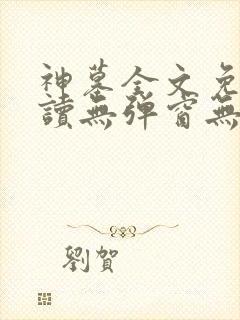 神墓全文免
讀無彈窗無
劉賀